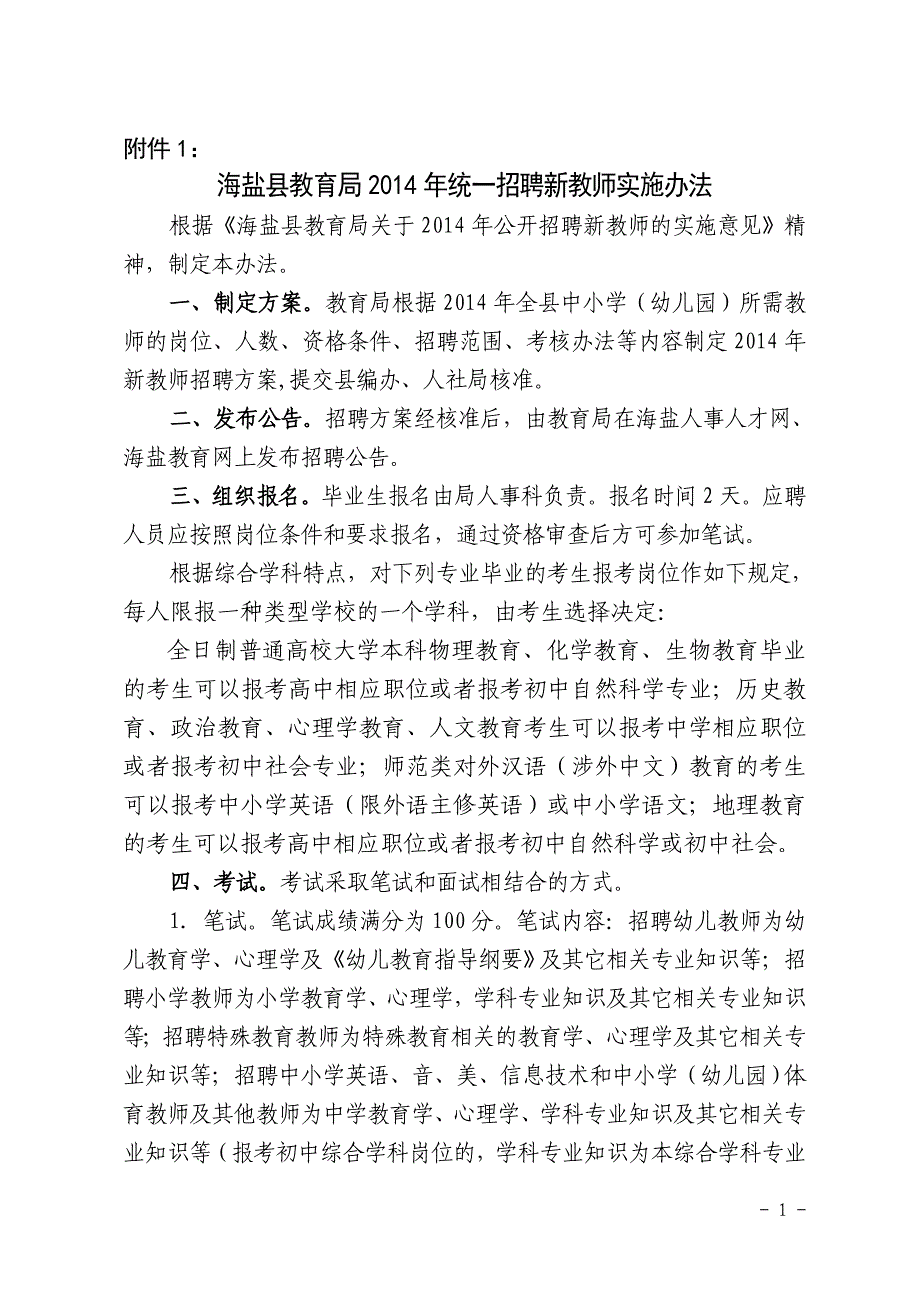 附件 1：
海盐县教育局 2014 年统一招聘新教师实施办法
根据《海盐县教育局关于 2014 年公开招聘新教师的实施意见》精
神，制定本办法。
一、制定方案。教育局根据 2014 年全县中小学（幼儿园）所需教
师的岗位、人数、资格条件、招聘范围、考核办法等内容制定 2014 年
新教师招聘方案,提交县编办、人社局核准。
二、发布公告。招聘方案经核准后，由教育局在海盐人事人才网、
海盐教育网上发布招聘公告。
三、组织报名。毕业生报名由局人事科负责。报名时间 2 天。应聘
人员应按照岗位条件和要求报名，通过资格审查后方可参加笔试。
根据综合学科特点，对下列专业毕业的考生报考岗位作如下规定，
每人限报一种类型学校的一个学科，由考生选择决定：
全日制普通高校大学本科物理教育、化学教育、生物教育毕业
的考生可以报考高中相应职位或者报考初中自然科学专业；历史教
育、政治教育、心理学教育、人文教育考生可以报考中学相应职位
或者报考初中社会专业；师范类对外汉语（涉外中文）教育的考生
可以报考中小学英语（限外语主修英语）或中小学语文；地理教育
的考生可以报考高中相应职位或者报考初中自然科学或初中社会。
四、考试。考试采取笔试和面试相结合的方式。
1．笔试。笔试成绩满分为 100 分。笔试内容：招聘幼儿教师为幼
儿教育学、心理学及《幼儿教育指导纲要》及其它相关专业知识等；招
聘小学教师为小学教育学、心理学，学科专业知识及其它相关专业知识
等；招聘特殊教育教师为特殊教育相关的教育学、心理学及其它相关专
业知识等；招聘中小学英语、音、美、信息技术和中小学（幼儿园）体
育教师及其他教师为中学教育学、心理学、学科专业知识及其它相关专
业知识等（报考初中综合学科岗位的，学科专业知识为本综合学科专业
- 1 -